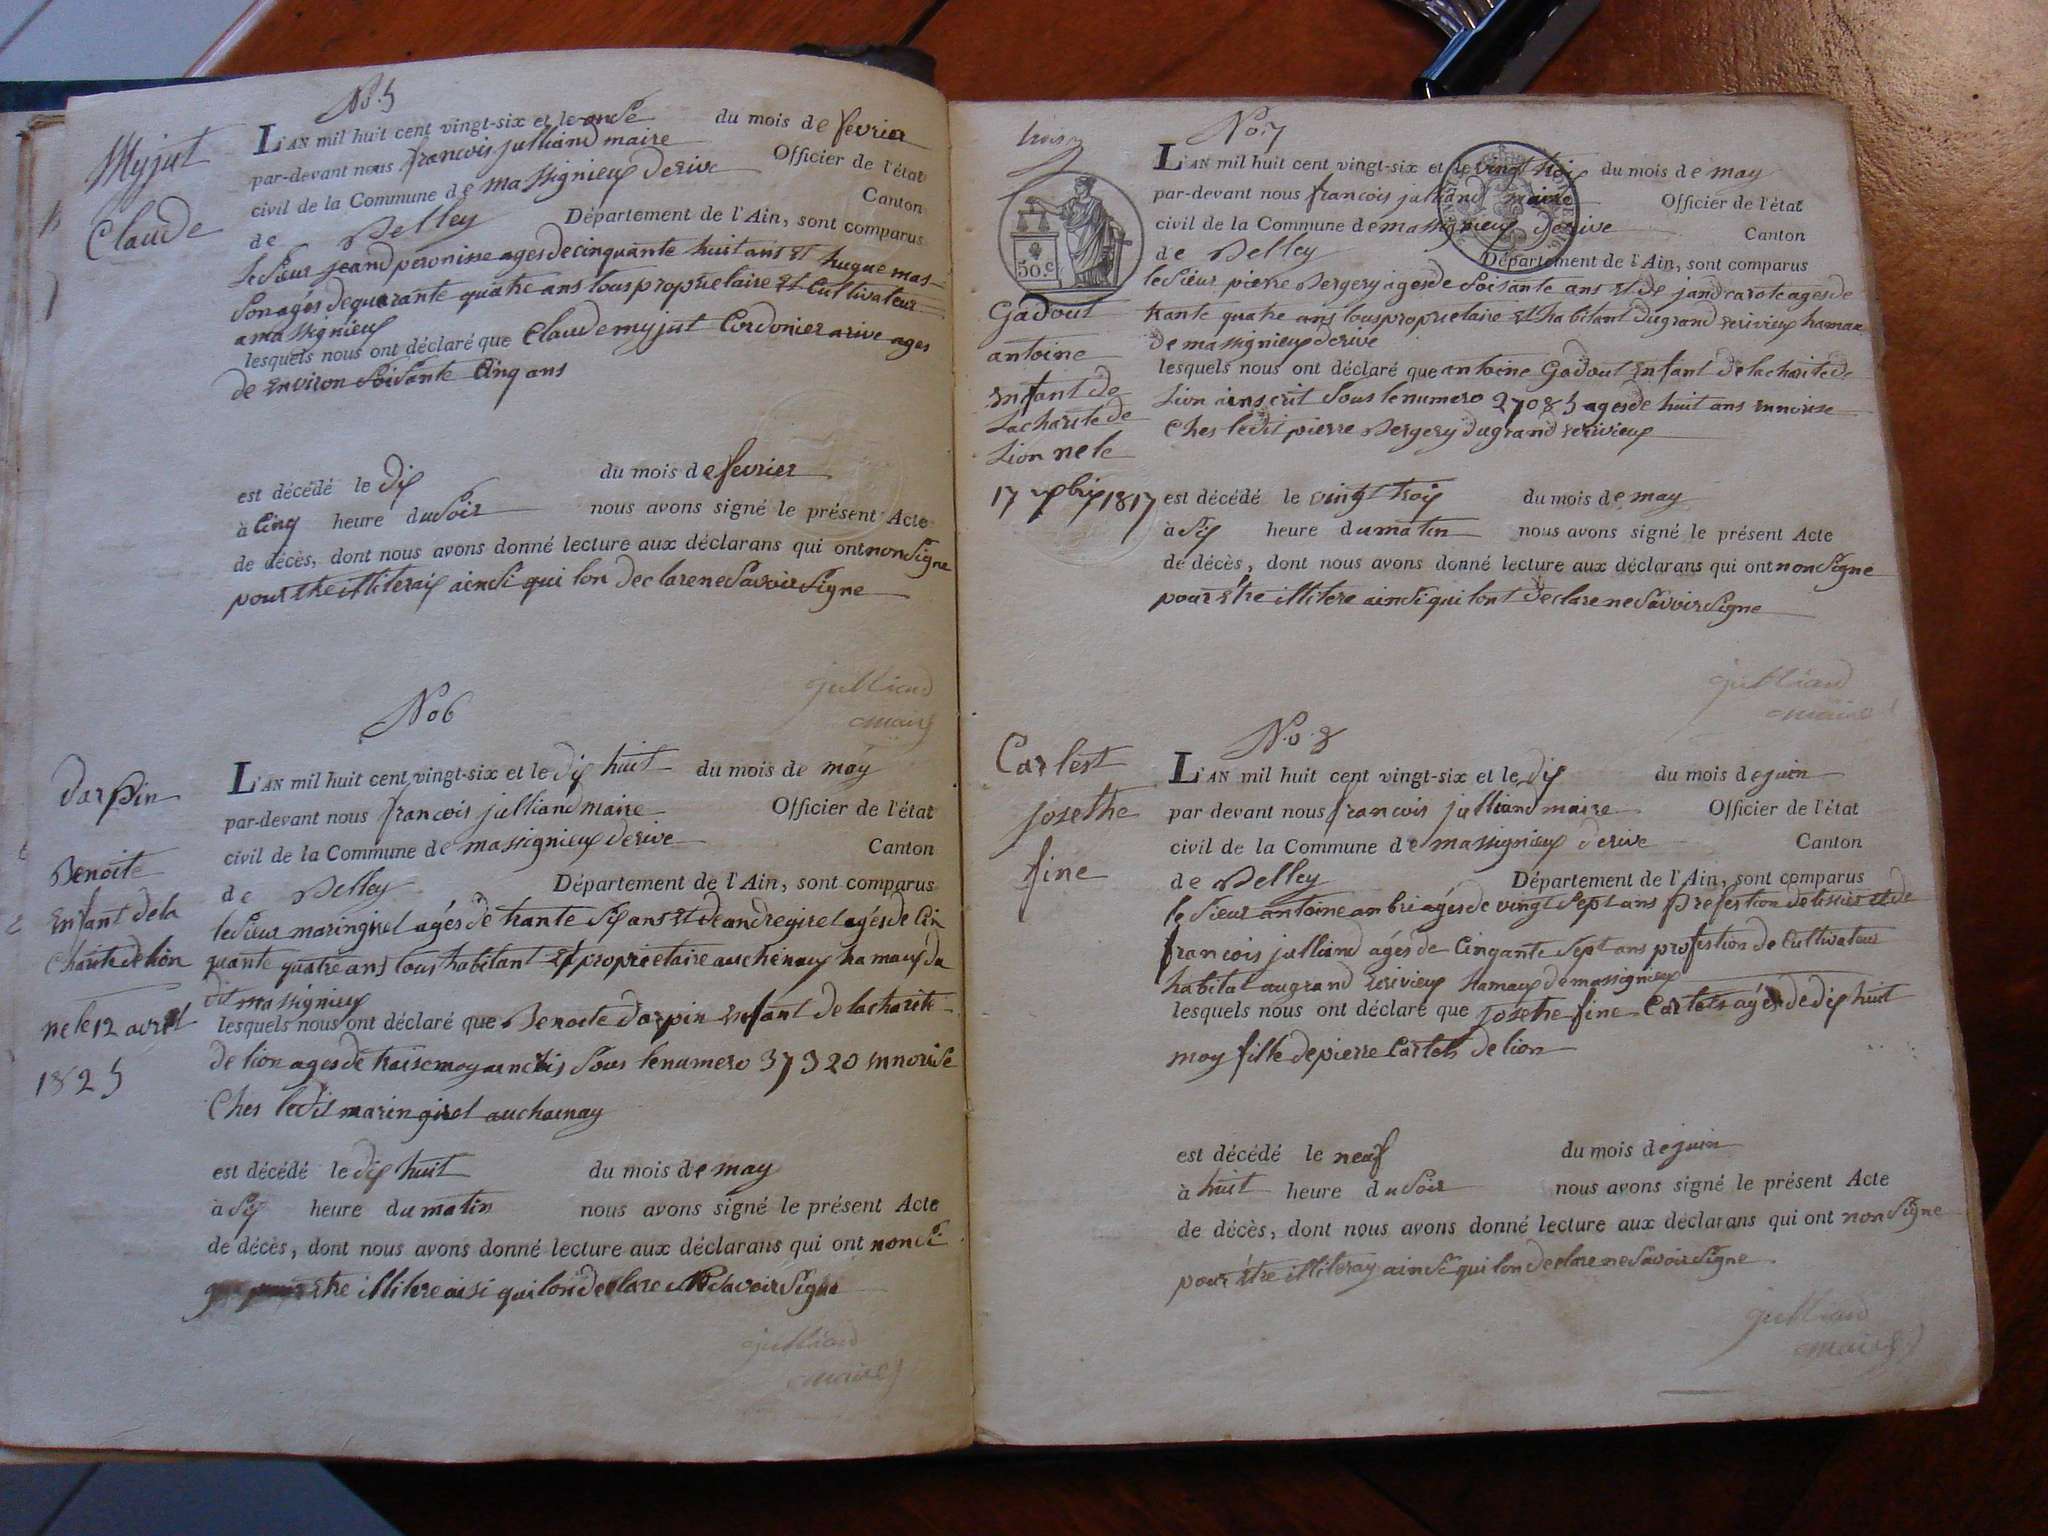 No. 5
Myjut
Claude
L'AN mil huit cent vingt-six et le onse du mois de fevrier
par-devant nous francois julliand maire Officier de l'état
civil de la Commune de massignieux derive Canton
de Belley Département de l'Ain, sont comparus
le Sieur jeand peronisse ages de cinquante huit ans Et hugue mas-
son agés de quarante quatre ans tous proprietaire Et Cultivateur
a massignieux
lesquels nous ont déclaré que Claude myjut Cordonier a rive ages
de Environ Soisante Cinq ans
est décédé le dix du mois de fevrier
à Cinq heure du Soir nous avons signé le présent Acte
de décès, dont nous avons donné lecture aux déclarans qui ont non Signe
pour Etre illiterais ainsi qui lon declare ne Savoir Signe
julliand
maire
No 6
Darpin
Benoite
Enfant de la
Charite de lion
ne le 12 avril
1825
L'AN mil huit cent vingt-six et le dix huit du mois de may
par-devant nous francois julliand maire Officier de l'état
civil de la Commune de massignieux derive Canton
de Belley Département de l'Ain, sont comparus
le Sieur marin girel agés de trante Six ans Et de andre girel agés de Cin
quante quatre ans tous habitant Et proprietaire au chenay hamaux du
dit massignieux
lesquels nous ont déclaré que Benoite Darpin Enfant de la charite
de lion ages de traise moy Sous le numero 37320 En norise
Ches ledit marin girel au chainay
est décédé le dix huit du mois de may
à Six heure du matin nous avons signé le présent Acte
de décès, dont nous avons donné lecture aux déclarans qui ont non Si
pour Etre illitere aisi qui lon declare Ne Savoir Signe
julliand
maire
No. 7
50.c
Gadout
antoine
Enfant de
La charite de
Lion ne le
17 1817
L'AN mil huit cent vingt-six et le vingt trois du mois de may
par-devant nous francois julliand maire Officier de l'état
civil de la Commune de massignieux derive Canton
de Belley Département de l'Ain, sont comparus
le Sieur pierre Bergery ages de Soisante ans Et de jand carote ages de
trante quatre ans tous proprietaire Et habitant du grand serivieux hamau
de massignieux derive
lesquels nous ont déclaré que antoine Gadout Enfant de la charite de
Lion inscrit Sous le numero 27085 ages de huit ans En norise
Ches ledit pierre Bergery du grand serivieux
est décédé le vingt trois du mois de may
à Six heure du matin nous avons signé le présent Acte
de décès, dont nous avons donné lecture aux déclarans qui ont non Signe
pour Etre illitere ainsi qui lont declare ne Savoir Signe
julliand
maire
No. 8
Carlest
Josethe
fine
L'AN mil huit cent vingt-six et le dix du mois de juin
par devant nous francois julliand maire Officier de l'état
civil de la Commune de massignieux derive Canton
de Belley Département de l'Ain, sont comparus
le Sieur antoine anbri agés de vingt Sept ans Profestion de tisier et de
francois julliand agés de Cinqante Sept ans profestion de Cultivateur
habitat au grand serivieux hamaux de massignieux
lesquels nous ont déclaré que josethe fine Carlets agés de dix huit
moy fille de pierre Carlets de lion
est décédé le neuf du mois de juin
à huit heure du Soir nous avons signé le présent Acte
de décès, dont nous avons donné lecture aux déclarans qui ont non Signe
pour être illiteray ainsi qui lon declare ne Savoir Signe
julliand
maire